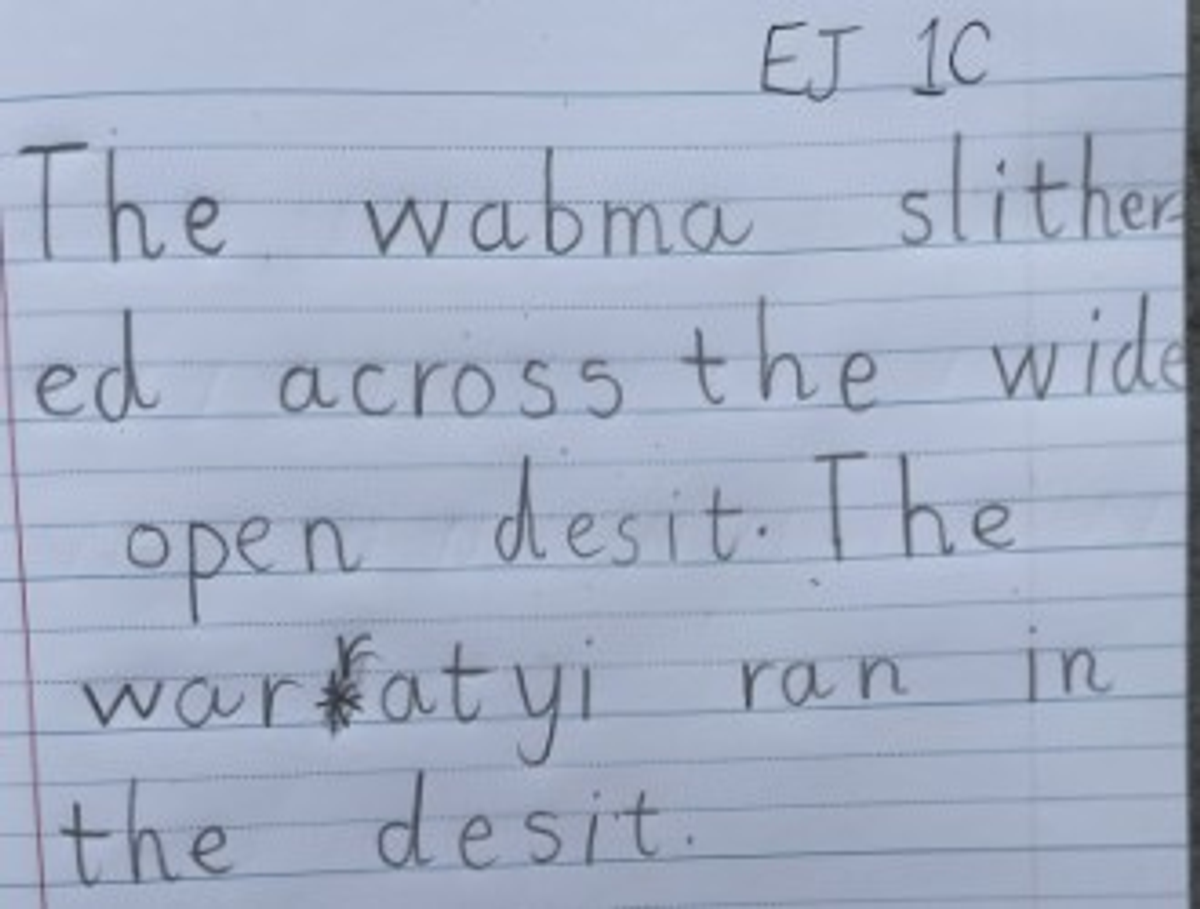 EJ 1C
The wabma slither-
ed across the wide
open desit. The
warratyi ran in
the desit.